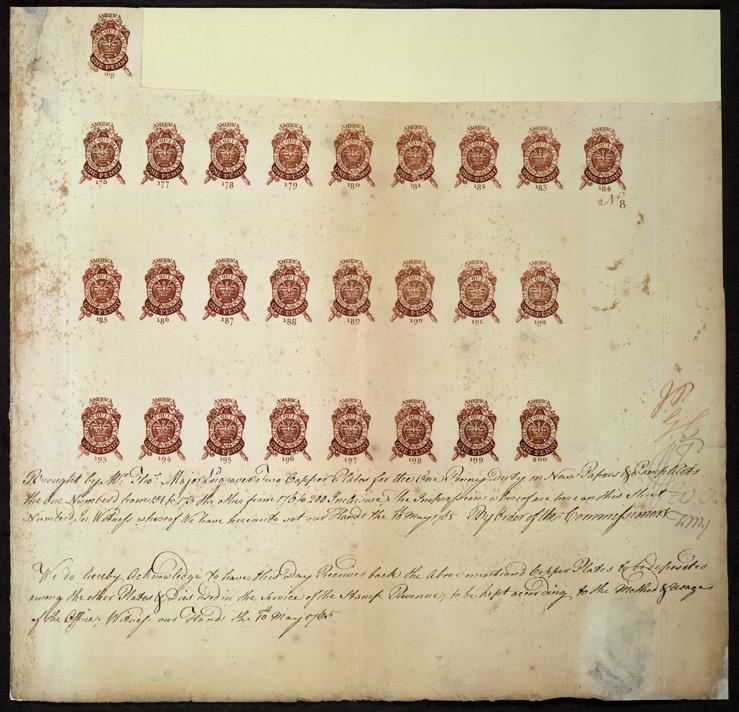 AMERICA
ONE PENNY
168
AMERICA AMERICA AMERICA AMERICA AMERICA AMERICA AMERICA AMERICA AMERICA
ONE PENNY ONE PENNY ONE PENNY ONE PENNY ONE PENNY ONE PENNY ONE PENNY ONE PENNY ONE PENNY
176 177 178 179 180 181 182 183 184
No 8
AMERICA AMERICA AMERICA AMERICA AMERICA AMERICA AMERICA AMERICA
ONE PENNY ONE PENNY ONE PENNY ONE PENNY ONE PENNY ONE PENNY ONE PENNY ONE PENNY
185 186 187 188 189 190 191 192
AMERICA AMERICA AMERICA AMERICA AMERICA AMERICA AMERICA AMERICA
ONE PENNY ONE PENNY ONE PENNY ONE PENNY ONE PENNY ONE PENNY ONE PENNY ONE PENNY
193 194 195 196 197 198 199 200
Brought by Mr. Tho: Major Engraver Two Copper Plates for the One Penny Duty on News Papers & Pamphlets
the One Number'd from 151 to 175 the other from 176 to 200 Inclusive the Impressions whereof are here on this Sheet
Number'd, In Witness whereof We have hereunto set our Hands the 10 May 1765 By Order of the Commissioners
We do hereby Acknowledge to have this Day Received back the above mentioned Copper Plates to be deposited
among the other Plates & Dies used in the Service of the Stamp Revenue, to be kept according to the Method & usage
of the Office, Witness our Hand the 10th May 1765